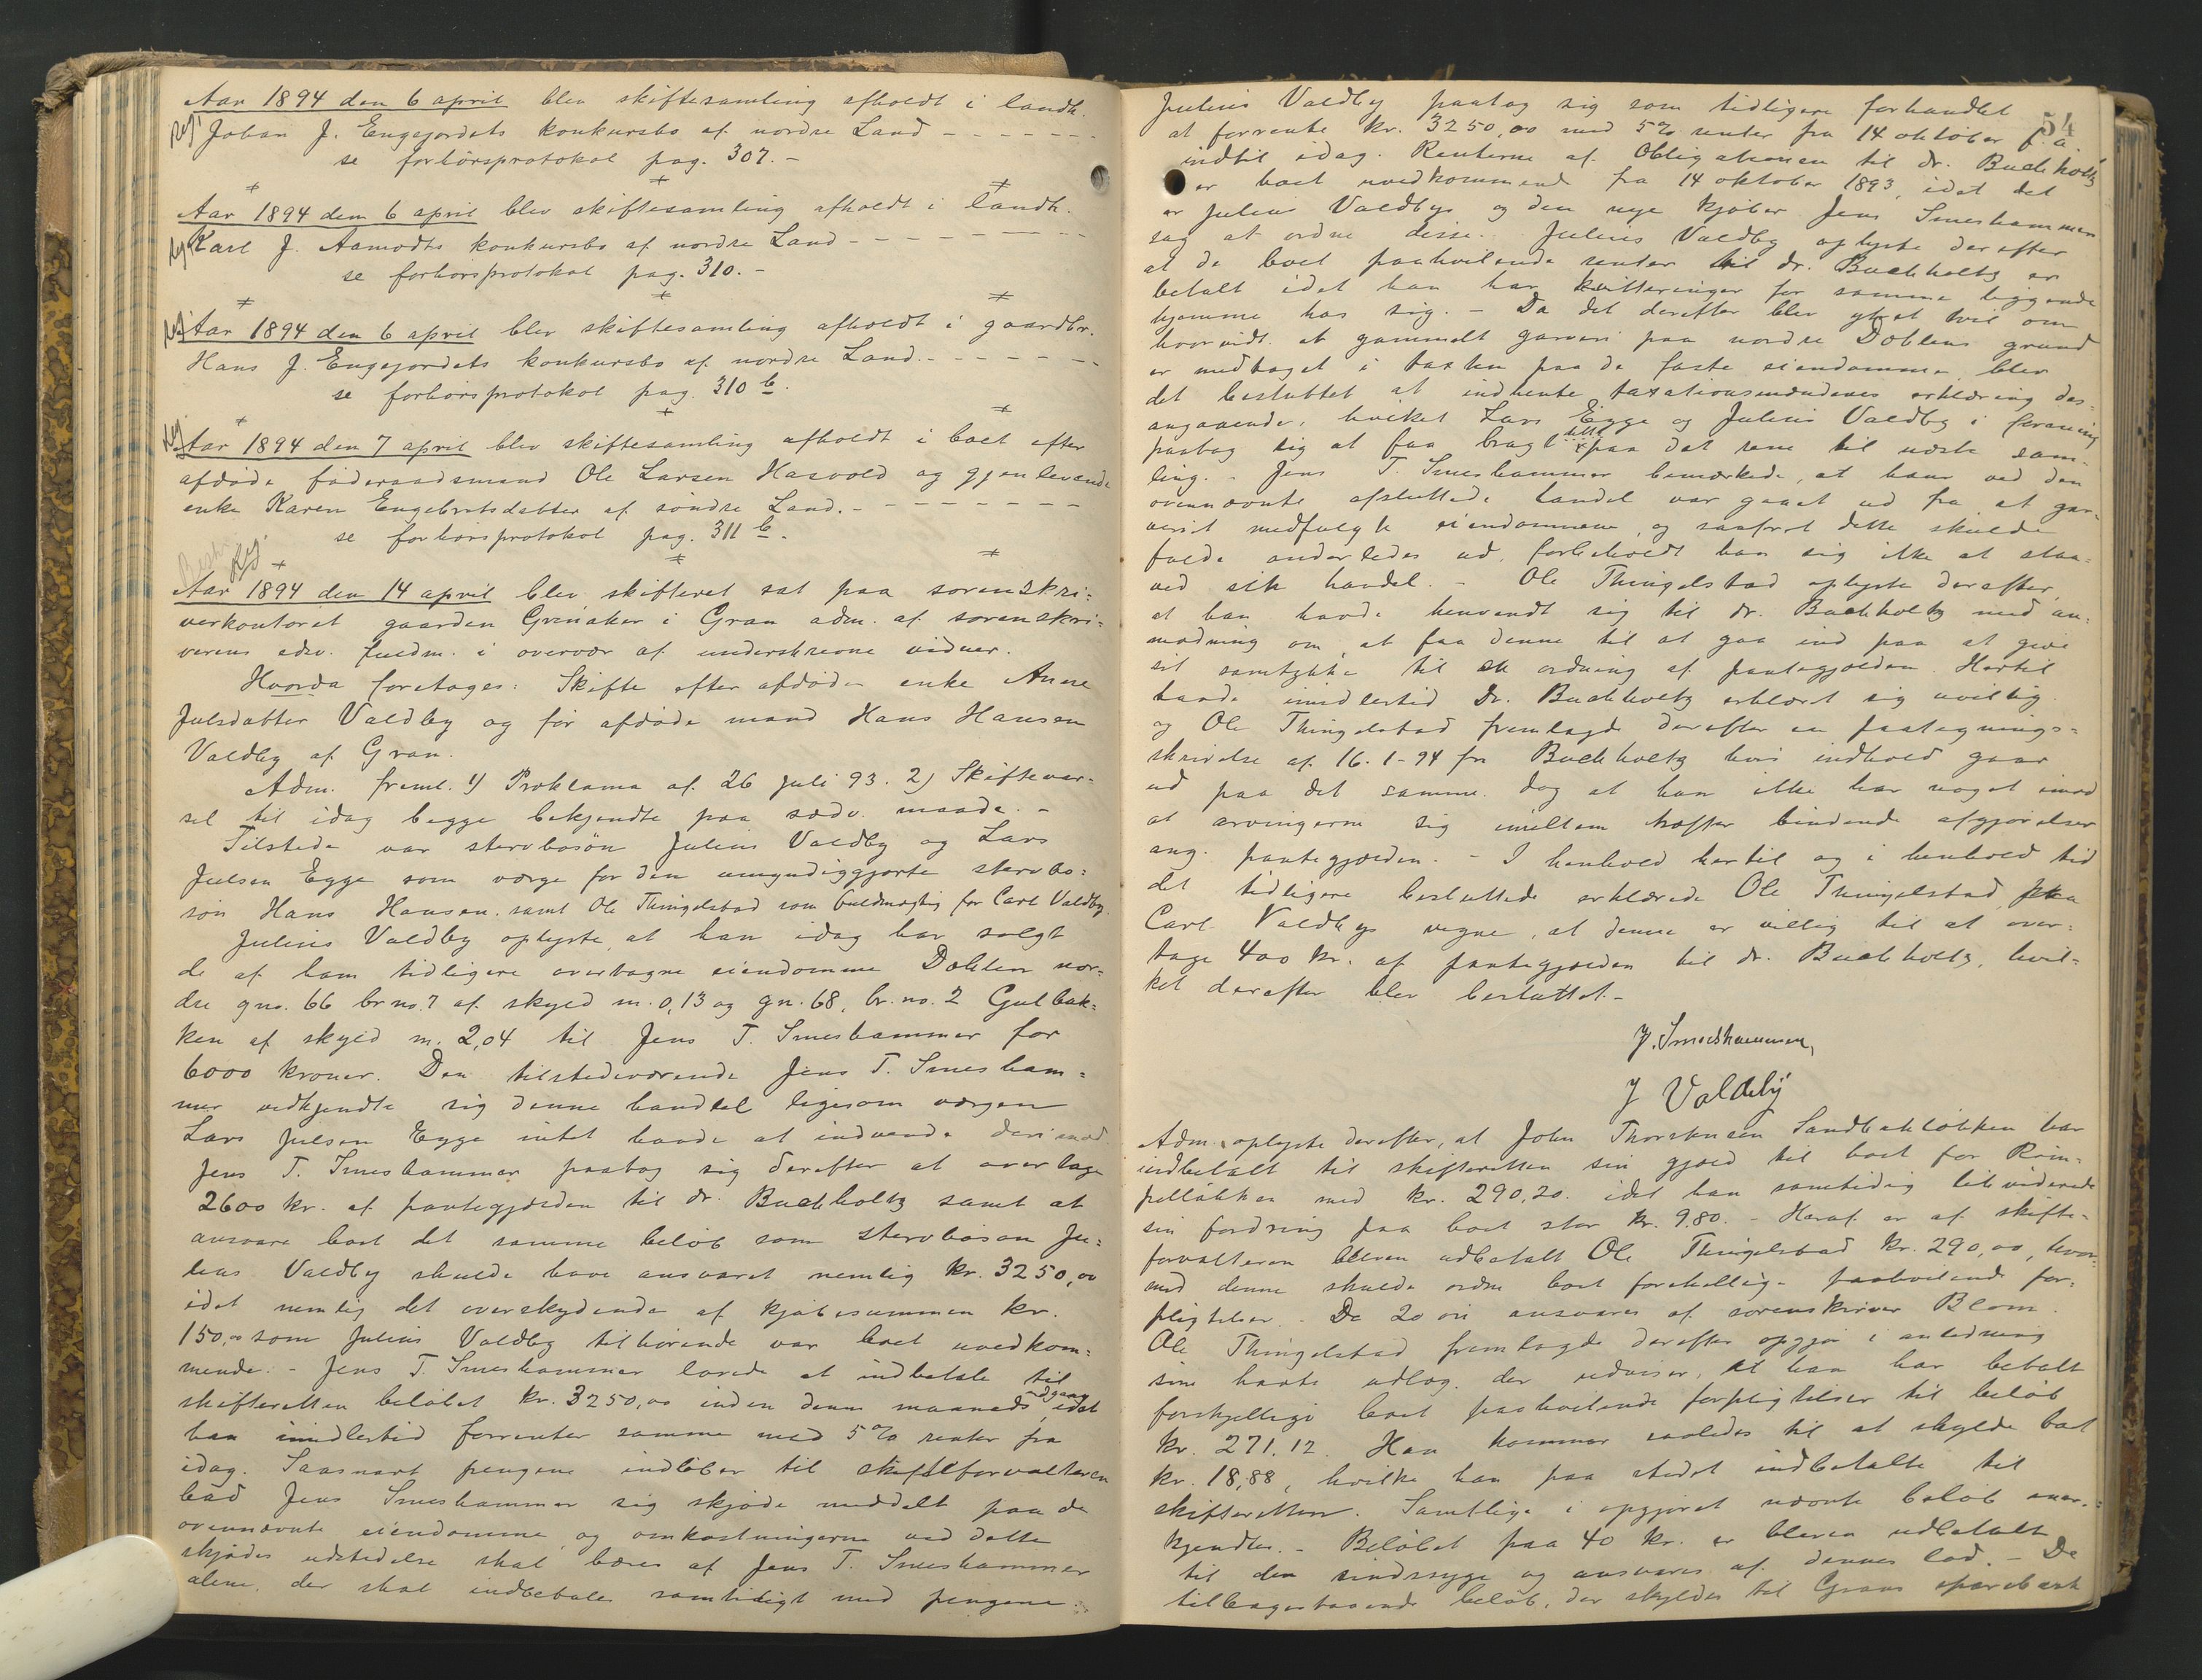 Aar 1894 den 6 april blev skiftesamling afholdt i landh.
Reg! Johan J. Engejordets konkursbo af nordre Land - - - - - - -
se forhörsprotokol pag. 307. -
Aar 1894 den 6 april blev skiftesamling afholdt i landh.
Reg! Karl J. Aamodts konkursbo af nordre Land - - - - - - - - -
se forhörsprotokol pag. 310. -
Reg! Aar 1894 den 6 april blev skiftesamling afholdt i gaardbr.
Hans J. Engejordets konkursbo af nordre Land. - - - - - - -
se forhörsprotokol pag. 310 b.
Reg! Aar 1894 den 7 april blev skiftesamling afholdt i boet efter
afdöde föderaadsmand Ole Larsen Hasvold og gjenlevende
enke Karen Engebretsdatter af söndre Land. - - - - - - - -
se forhörsprotokol pag. 311 b.
Reg!
Aar 1894 den 14 april blev skifteret sat paa sorenskri=
verkontoret gaarden Grinaker i Gran adm. af sorenskri=
verens edsv. fuldm. i overvær af underskrevne vidner.
Hvorda foretoges: Skifte efter afdöde enke Anne
Julsdatter Valdby og för afdöde mand Hans Hansen
Valdby af Gran.
Adm. freml. 1) Proklama af 26 juli 93. 2) Skiftevar-
sel til idag begge bekjendte paa sædv. maade. -
Tilstede var stervbosön Julius Valdby og Lars
Julsen Egge som værge for den umyndiggjorte stervbo=
sön Hans Hansen. samt Ole Thingelstad som fuldmægtig for Carl Valdby.
Julius Valdby oplyste, at han idag har solgt
de af ham tidligere overtagne eiendomme Dæhlen nor=
dre gno. 66 brno. 7 af skyld m. 0,13 og gn. 68, br. no. 2 Gulbak=
ken af skyld m. 2,04 til Jens T. Smeshammer for
6000 kroner. Den tilstedeværende Jens T. Smesham=
mer vedkjendte sig denne handel ligesom værgen
Lars Julsen Egge intet havde at indvende derimod.
Jens T. Smeshammer paatog sig derefter at overtage
2600 kr. af pantegjælden til dr. Buchholtz samt at
ansvare boet det samme beløb som stervbosön Ju=
lius Valdby skulde have ansvaret nemlig kr. 3250,00
idet nemlig det overskydende af kjöbesummen kr.
150,00 som Julius Valdby tilhörende var boet uvedkom=
mende. - Jens T. Smeshammer lovede at indbetale til
skifteretten belöbet kr. 3250,00 inden denne maaneds udgang, idet
han imidlertid forrenter samme med 5 % renter fra
idag. Saasnart pengene indlöber til skifteforvalteren
bad Jens Smeshammer sig skjöde meddelt paa de
ovennævnte eiendomme, og omkostningerne ved dette
skjödes udstedelse skal bæres af Jens T. Smeshammer
alene, der skal indbetales samtidigt med pengene.
54
Julius Valdby paatog sig som tidligere forhandlet
at forrente kr. 3250,00 med 5% renter fra 14 oktober f. a.
indtil idag. Renterne af Obligationen til dr. Buchholtz
er boet uvedkommende fra 14 oktober 1893, idet det
er Julius Valdbys og den nye kjöber Jens Smeshammers
sag at ordne disse. Julius Valdby oplyste derefter
at de boet paahvilende renter til dr. Buchholtz er
betalt idet han har kvitteringer for samme liggende
hjemme hos sig. - Da det derefter blev ytret tvil om
hvorvidt et gammelt garveri paa nordre Dæhlens grund
er medtaget i taxten paa de faste eiendomme, blev
det besluttet at indhente taxationsmændenes erklæring des=
angaaende, hvilket Lars Egge og Julius Valdby i forening
paatog sig at faa bragt tilst paa det rene til næste sam-
ling. - Jens T. Smeshammer bemærkede, at han ved den
ovennævnte afsluttede handel var gaaet ud fra at gar-
veriet medfulgte eiendommene, og saafremt dette skulde
falde anderledes ud, forbeholdt han sig ikke at staa
ved sin handel. - Ole Thingelstad oplyste derefter,
at han havde henvendt sig til dr. Buchholtz med an=
modning om, at faa denne til at gaa ind paa at give
sit samtykke til en ordning af pantegjælden. Hertil
havde imidlertid Dr. Buchholtz erklæret sig uvillig
og Ole Thingelstad fremlagde derefter en paategnings=
skrivelse af 16. 1 - 94 fra Buchholtz hvis indhold gaar
ud paa det samme. dog at han ikke har noget imod
at arvingerne sig imellem træffer bindende afgjörelser
ang. pantegjælden. - I henhold hertil og i henhold til
det tidligere besluttede erklærede Ole Thingelstad paa
Carl Valdbys vegne, at denne er villig til at over=
tage 400 kr. af pantegjælden til dr. Buchholtz, hvil=
ket derefter blev besluttet. -
J. Smedshammer,
J Valdby
Adm. oplyste derefter, at John Thorstensen Sandbæklökken har
indbetalt til skifteretten sin gjæld til boet for Röm-
pellökken med kr. 290,20. idet han samtidig likviderede
sin fordring paa boet stor kr. 9.80. - Heraf er af skifte-
forvalteren bleven udbetalt Ole Thingelstad kr. 290,00, hvor-
med denne skulde ordne boet forskellige paahvilende for=
pligtelser. - De 20 öre ansvares af sorenskriver Blom.
Ole Thingelstad fremlagde derefter opgjör i anledning
sine havte udlæg. der udviser, at han har betalt
forskjellige boet paahvilende forpligtelser til belöb
kr. 271.12. Han kommer saaledes til at skylde boet
kr. 18,88, hvilke han paa stedet indbetalte til
skifteretten. Samtlige i opgjöret nævnte belöb aner-
kjendtes. - Belöbet paa 40 kr. er bleven udbetalt
til den sindssyge og ansvares af dennes lod. - De
tilbagestaaende belöb, der skyldes til Grans sparebank